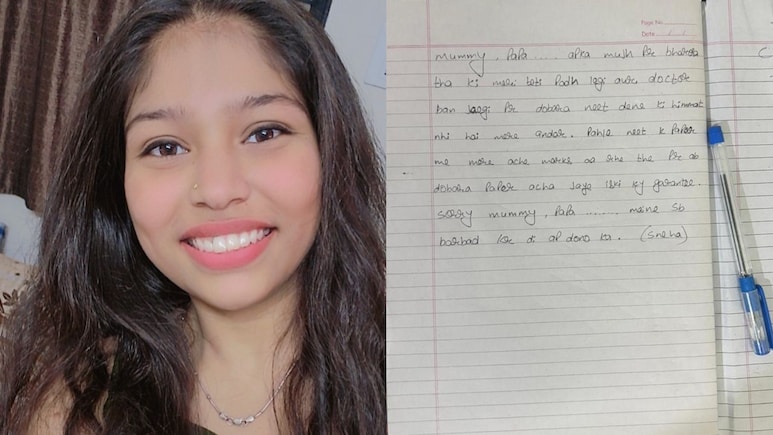 Page No.
Date
mummy, Papa ..... apka mujh Pr bharosa
tha ki meri beti Padh legi aur doctor
ban jaegi Pr dobara neet dene ki himmat
nhi hai mere andar. Pahle neet k Paper
me mere ache marks aa rhe the Pr ab
dobara Paper acha jaye iski ky garantee.
sorry mummy, Papa ....... maine sb
barbad kr di ap dono ka. (Sneha)